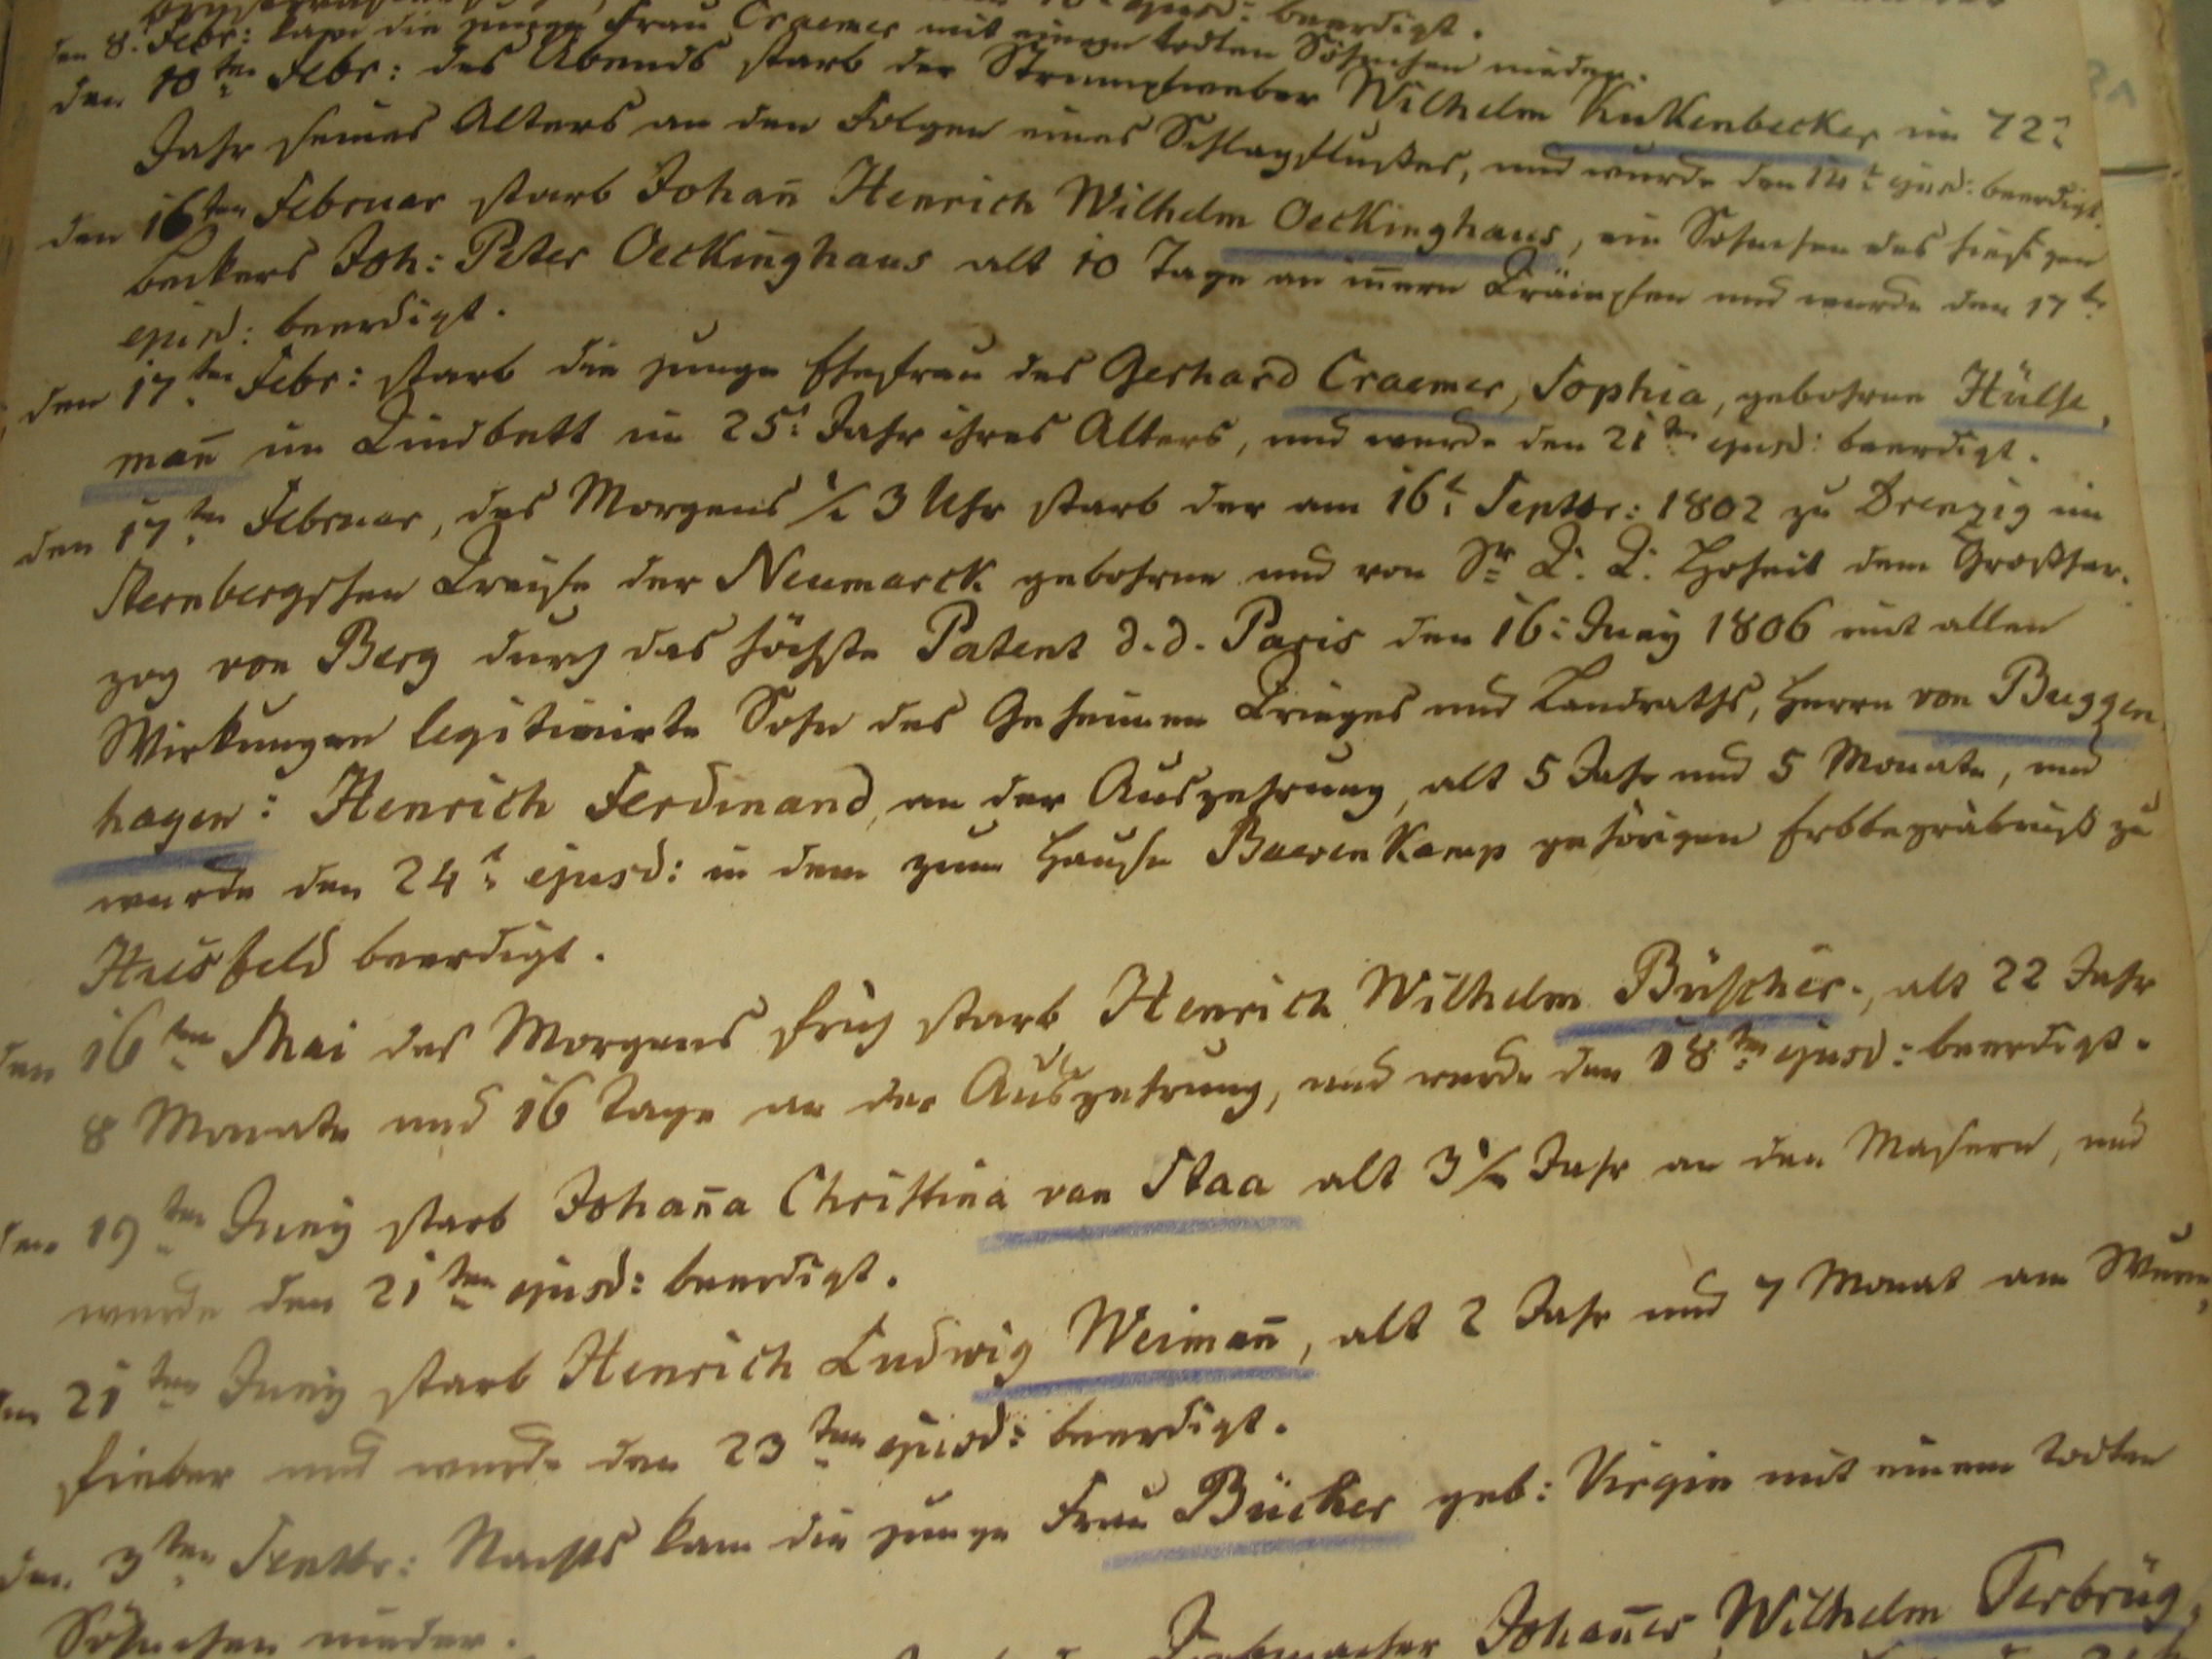 ejusd: beerdigt.
den 8. Febr: kam die junge Frau Craemer mit einem todten Söhnchen nieder.
den 10ten Febr: des Abends starb der Strumpfweber Wilhelm Kuckenbecker im 72t
Jahr seines Alters an den Folgen eines Schlagflußes, und wurde den 14t ejusd: beerdigt.
den 16ten Februar starb Johan̄ Henrich Wilhelm Oeckinghaus, ein Söhnchen des hiesigen
Beckers Joh: Peter Oeckinghaus alt 10 Tage an in̄ern Krämpfen und wurde den 17te
ejusd: beerdigt.
den 17ten Febr: starb die junge Ehefrau des Gerhard Craemer, Sophia, gebohrne Hülse,
man̄ im Kindbett im 25t Jahr ihres Alters, und wurde den 21ten ejusd: beerdigt.
den 17ten Februar, des Morgens 1/2 3 Uhr starb der am 16t Septbr: 1802 zu Drenzig im
Sternbergschen Kreise der Neumarck gebohrne und von Sr K. K. Hoheit dem Großher,
zog von Berg durch das höchste Patent d. d. Paris den 16t Juny 1806 mit allen
Wirkungen legitimirte Sohn des Geheimen Krieges und Landraths, Herrn von Buggen
hagen: Henrich Ferdinand, an der Auszehrung, alt 5 Jahr und 5 Monate, und
wurde den 24t ejusd: in dem zum Hause Baerenkamp gehörigen Erbbegräbniß zu
Hiesfeld beerdigt.
den 16ten Mai des Morgens früh starb Henrich Wilhelm Büscher, alt 22 Jahr
8 Monate und 16 Tage an der Auszehrung, und wurde den 18ten ejusd: beerdigt.
den 19ten Juny starb Johan̄a Christina van Staa alt 3 1/2 Jahr an den Masern, und
wurde den 21ten ejusd: beerdigt.
den 21ten Juny starb Henrich Ludwig Weiman̄, alt 2 Jahr und 7 Monat am Wurm,
fieber und wurde den 23ten ejusd: beerdigt.
den 3ten Septbr: Nachts kam die junge Frau Bücker geb: Virgin mit einem todten
Söhnchen nieder.
Johan̄es Wilhelm Terbrüg,